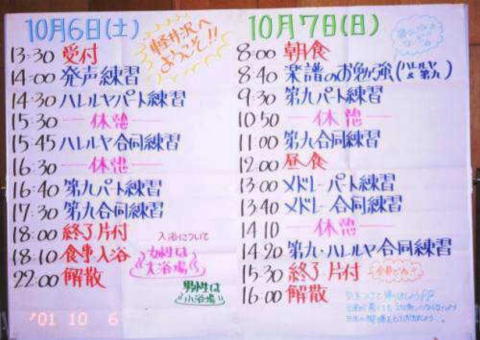 10月6日(土)
軽井沢へ
ようこそ!!
13:30 受付
14:00 発声練習
14:30 ハレルヤパート練習
15:30 ー休憩ー
15:45 ハレルヤ合同練習
16:30 ー休憩ー
16:40 第九パート練習
17:30 第九合同練習
18:00 終了片付
18:10 食事入浴
22:00 解散
入浴について
女性は
大浴場
男性は
小浴場
'01 10 6
10月7日(日)
8:00 朝食
8:40 楽譜のお勉強(ハレルヤ&第九)
9:30 第九パート練習
10:50 ー休憩ー
11:00 第九合同練習
12:00 昼食
13:00 メドレーパート練習
13:40 メドレー合同練習
14:10 ー休憩ー
14:20 第九・ハレルヤ合同練習
15:30 終了片付
16:00 解散